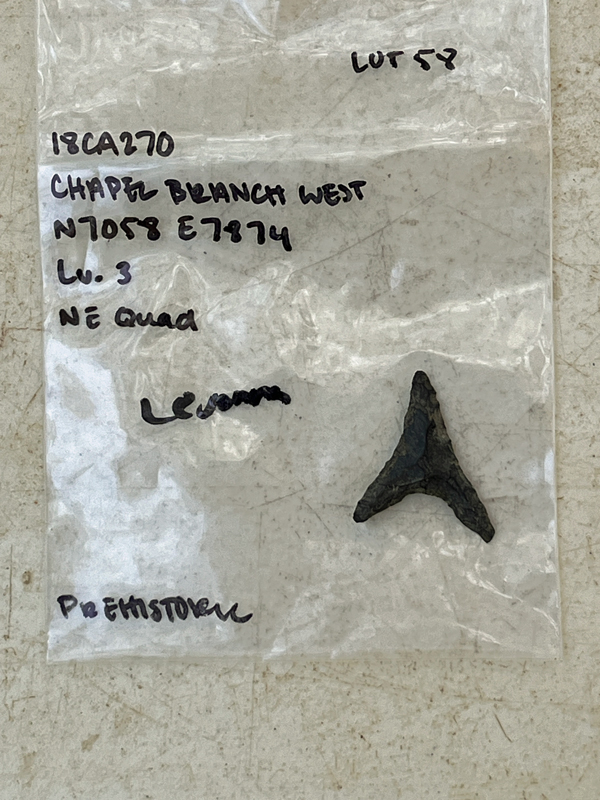 LOT 58
18CA270
CHAPEL BRANCH WEST
N7058 E7874
Lv. 3
NE Quad
Levanna
PREHISTORIC